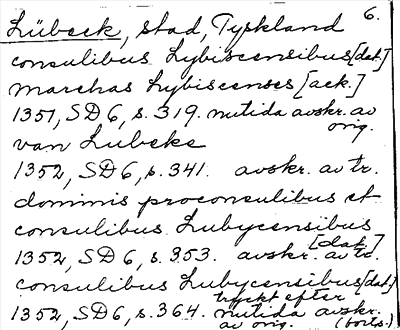 6.
Lübeck, stad, Tyskland
consulibus Lybiscensibus [dat.]
marchas Lybiscenses [ack.]
1351, SD 6, s. 319. nutida avskr. av
orig.
van Lubeke
1352, SD 6, s. 341. avskr. av tr.
dominis proconsulibus et
consulibus Lubycensibus
[dat.]
1352, SD 6, s. 353. avskr. av tr.
consulibus Lubycensibus [dat.]
tryckt efter
1352, SD 6, s. 364. nutida avskr.
av orig. (forts.)